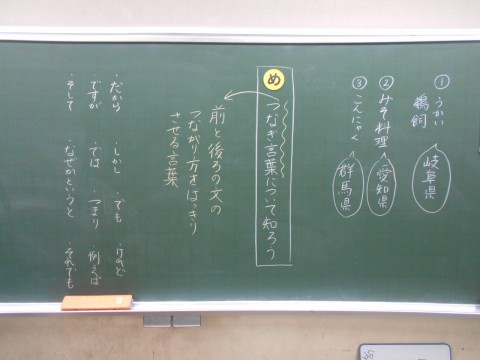 ①うかい
鵜飼
岐阜県
②みそ料理
愛知県
③こんにゃく
群馬県
め
つなぎ言葉について知ろう
前と後ろの文の
つながり方をはっきり
させる言葉
・だから ・しかし ・でも ・けれど
・ですが ・では ・つまり ・例えば
・そして ・なぜかというと ・それでも